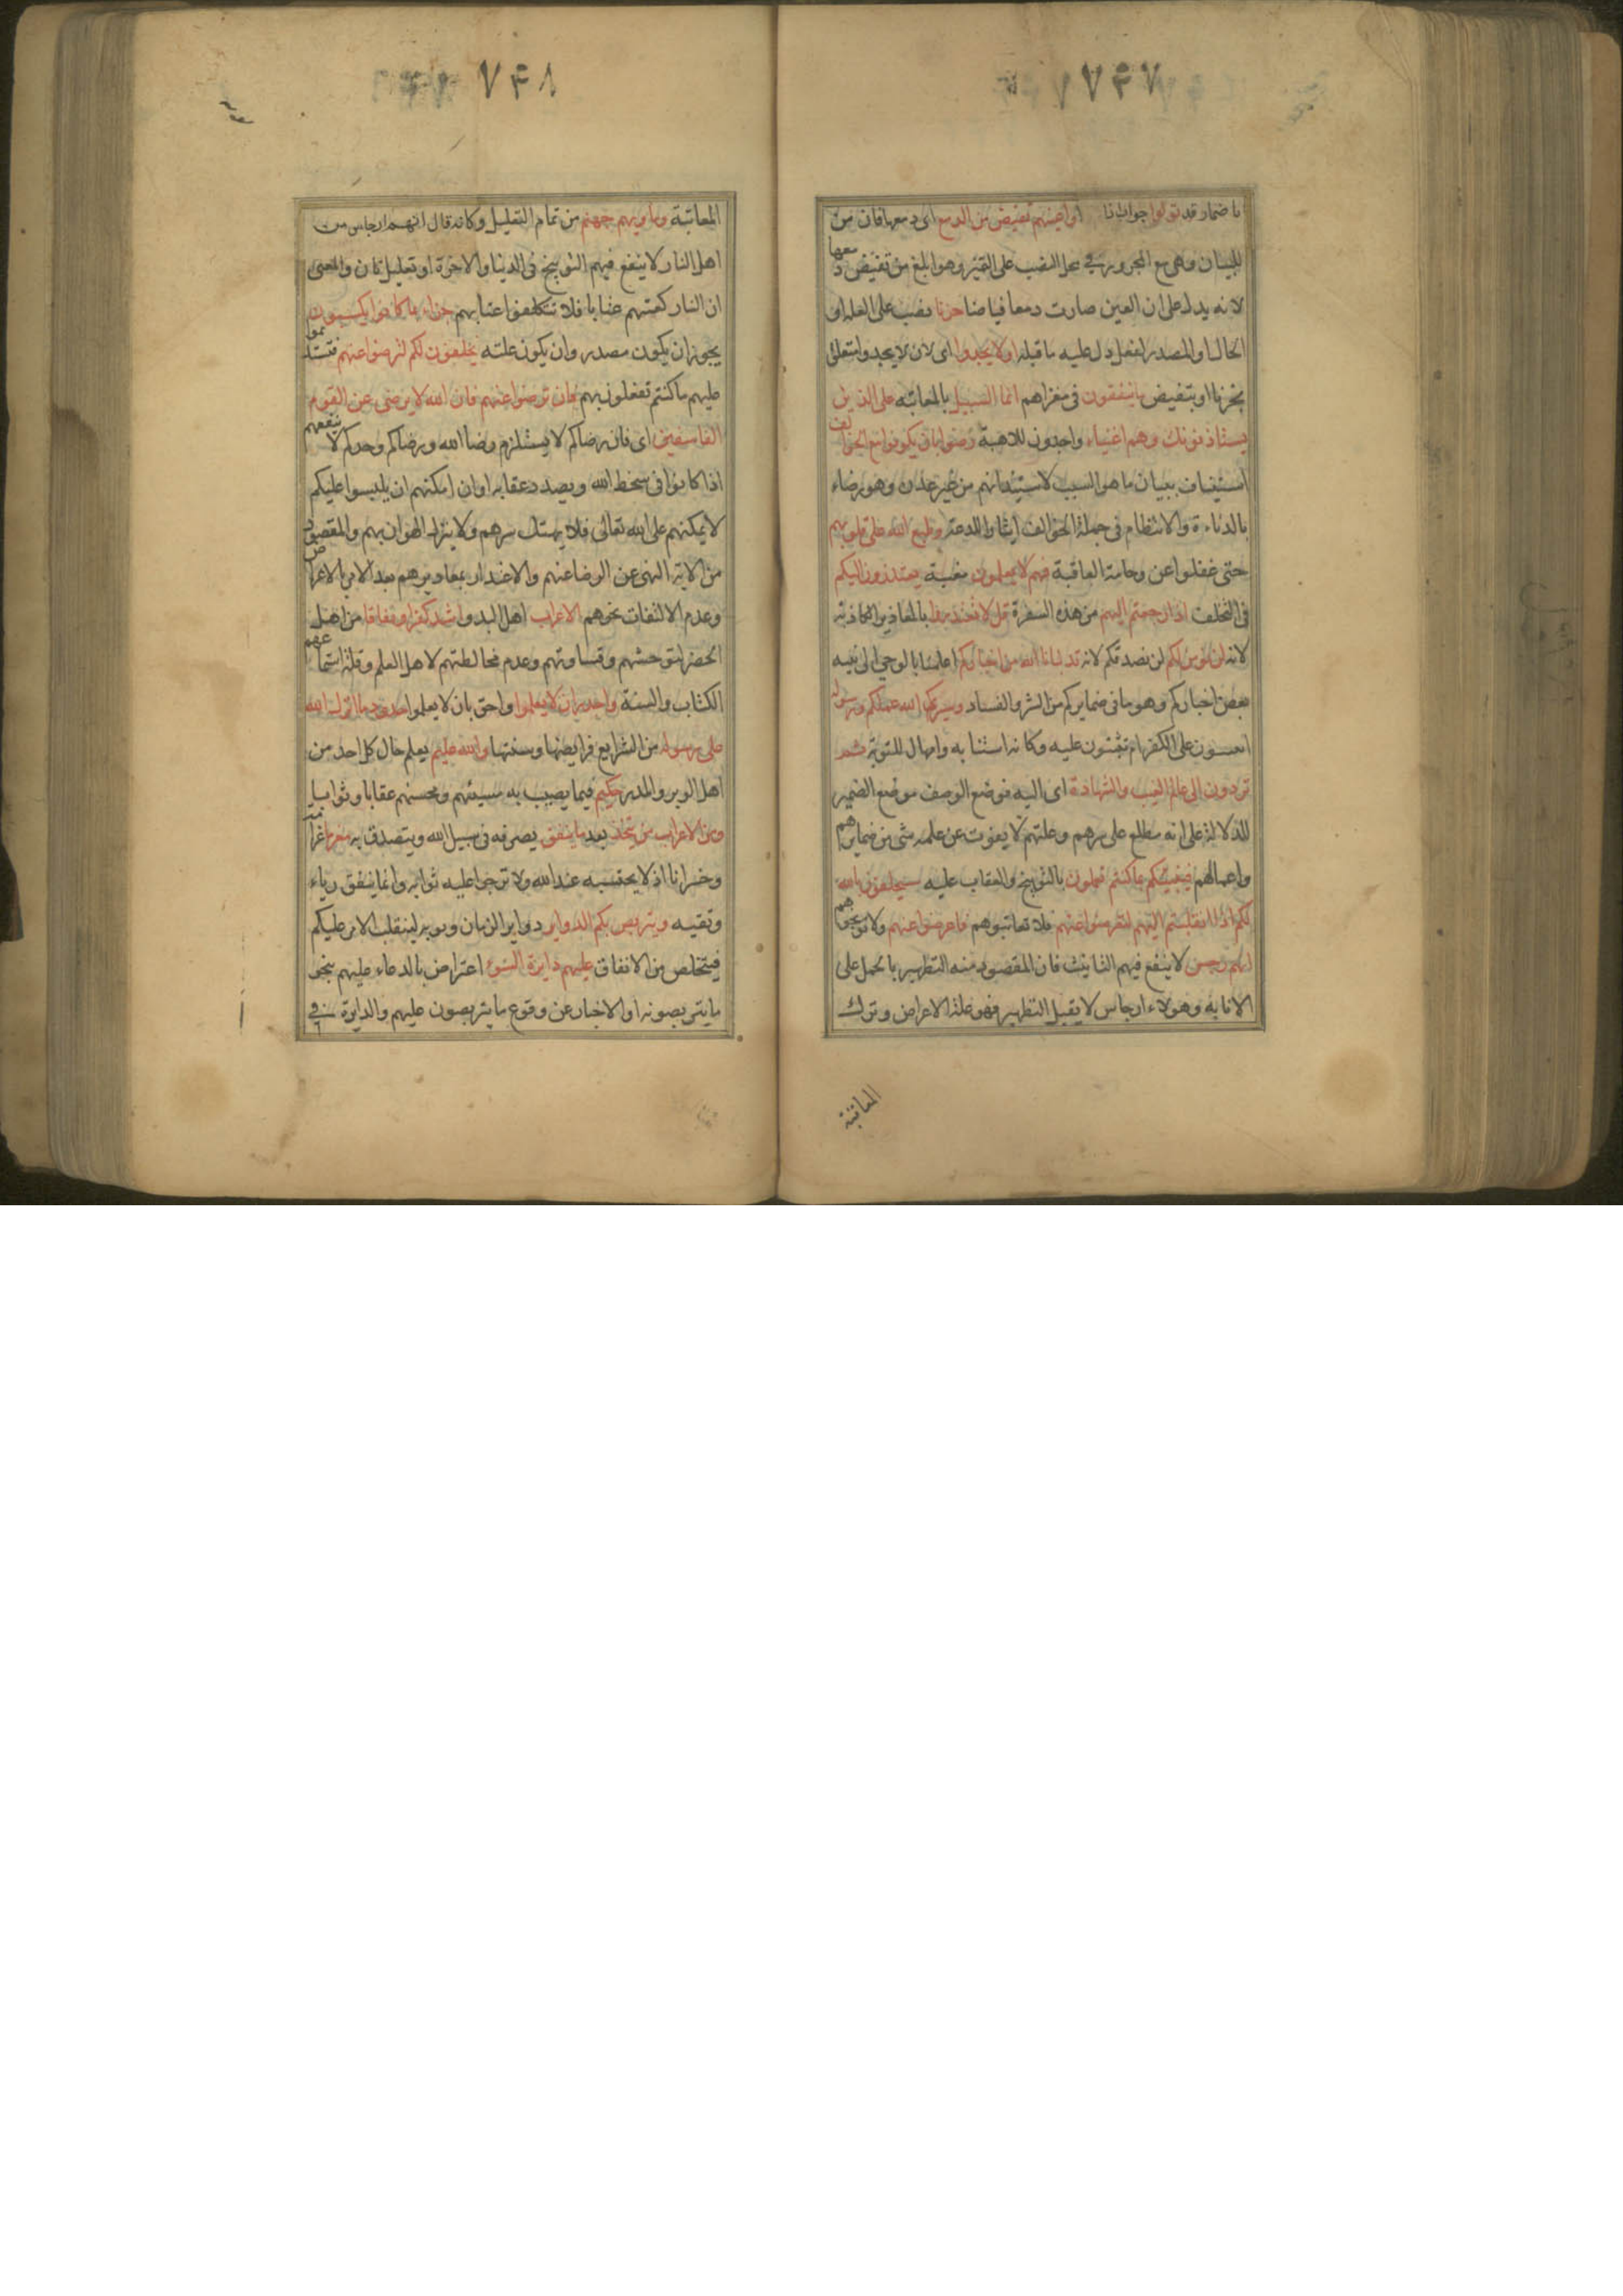 ٧۴٧
باضمار قد تولوا جواب اذا واعينهم تفيض من الدمع اى دمعها فان من
للبيان وهى مع المجرور فى محل النصب على التميز وهو ابلغ من تفيض دمعها
لانه يدل على ان العين صارت دمعا فياضا حزنا نصب على العلة او
الحال او المصدر لفعل دل عليه ما قبله ان لا يجدوا اى لان لا يجدوا متعلق
بحزنا او بتفيض ما ينفقون فى مغزاهم انما السبيل بالمعاتبه على الذين
يستاذنونك وهم اغنياء واجدون للاهبة رضوا بان يكونوا مع الخوالف
استيناف ببيان ما هو السبب لاستيذانهم من غير عذر وهو رضاء
بالدناءة والانتظام فى جملة الخوالف ايثارا للدعة وطبع الله على قلوبهم
حتى غفلوا عن وخامة العاقبة فهم لا يعلمون مغبة يعتذرون اليكم
فى التخلف اذا رجعتم اليهم من هذه السفرة قل لا تعتذروا بالمعاذير الكاذبة
لانه لن نؤمن لكم لن نصدقكم لانه قد نبانا الله من اخباركم اعلمنا بالوحى الى نبيه
بعض اخباركم وهو ما فى ضمايركم من الشر والفساد وسيرى الله عملكم ورسوله
اتعسون على الكفر ام تثبتون عليه وكانه استتابه وامهال للتوبة ثم
تردون الى عالم الغيب والشهادة اى اليه فوضع الوصف موضع الضمير
للدلالة على انه مطلع على سرهم وعلنهم لا يفوت عن علمه شى من ضمايرهم
واعمالهم فينبئكم بما كنتم تعملون بالتوبيخ والعقاب عليه سيحلفون بالله
لكم اذا انقلبتم اليهم لتعرضوا عنهم فلا تعاتبوهم فاعرضوا عنهم ولا توبخوهم
انهم رجس لا ينفع فيهم التانيث فان المقصود منه التطهير بالحمل على
الانابه وهولاء ارجاس لا يقبل التطهير فهو علة الاعراض وترك
المعاتبة
٧۴٨
المعاتبة وماويهم جهنم من تمام التعليل وكانه قال انهم ارجاس من
اهل النار لا ينفع فيهم التوبيخ فى الدنيا والاخرة او تعليل ثان والمعنى
ان النار كفتهم عتابا فلا تتكلفوا عتابهم جزاء بما كانوا يكسبون
يجوز ان يكون مصدر وان يكون علته يحلفون لكم لترضوا عنهم فتستديموا
عليهم ما كنتم تفعلون بهم فان ترضوا عنهم فان الله لا يرضى عن القوم
الفاسقين اى فان رضاكم لا يستلزم رضا الله ورضاكم وحدكم لا ينفعهم
اذا كانوا فى سخط الله وبصدد عقابه او ان امكنهم ان يلبسوا عليكم
لا يمكنهم على الله تعالى فلا يهتك سرهم ولا ينزل الهوان بهم والمقصود
من الاية النهى عن الرضا عنهم والاغترار بمعاذيرهم بعد الامر بالاعراض
وعدم الالتفات نحوهم الاعراب اهل البدو اشد كفرا ونفاقا من اهل
الحضر لتوحشهم وقساوتهم وعدم مخالطتهم لاهل العلم وقلة استماعهم
الكتاب والسنة واجدر ان لا يعلموا واحق بان لا يعلموا حدود ما انزل الله
على رسوله من الشرايع فرايضها وسننها والله عليم يعلم حال كل احد من
اهل الوبر والمدر حكيم فيما يصيب به مسيئهم ومحسنهم عقابا وثوابا
ومن الاعراب من يتخذ يعد ما ينفق يصرفه فى سبيل الله ويتصدق به مغرما غرامة
وخسرانا اذ لا يحتسبه عند الله ولا ترجى عليه ثوابه وانما ينفق رياء
وتقيه ويتربص بكم الدواير دواير الزمان ونوبه لينقلب الامر عليكم
فيتخلص من الانفاق عليهم دايرة السوء اعتراض بالدعاء عليهم بنحو
ما يتربصونه او الاخبار عن وقوع ما يتربصون عليهم والدايرة فى